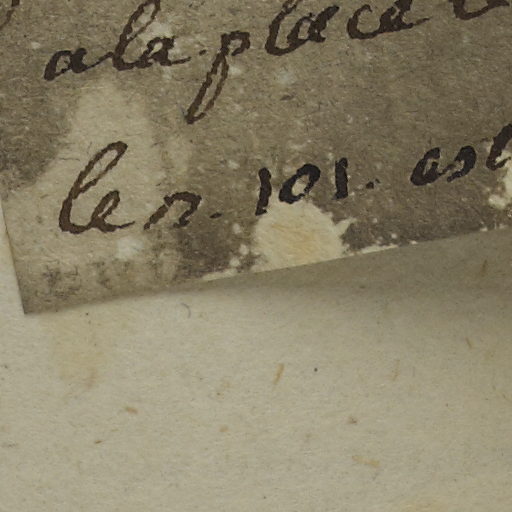 a la place
le n. 101. est